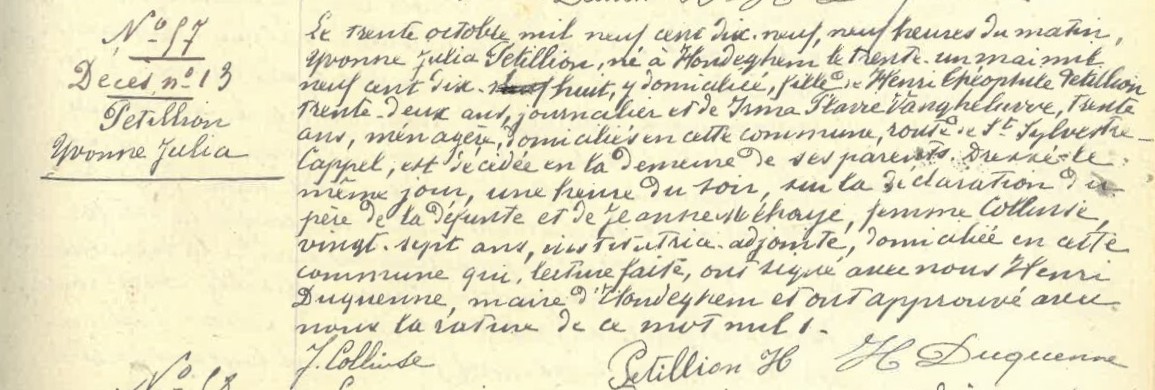 N° 57
Décès n° 13
Petillion
Yvonne Julia
Le trente octobre mil neuf cent dix-neuf, neuf heures du matin,
Yvonne Julia Petillion, né à Hondeghem le trente-un mai mil
neuf cent dix-huit, y domiciliée, fille de Henri Théophile Petillion
trente-deux ans, journalier et de Irma Vanghelurve, trente
ans, ménagère, domiciliés en cette commune, route de St Sylvestre-
Cappel, est décédée en la demeure de ses parents. Dressé le
même jour, une heure du soir, sur la déclaration du
père de la défunte et de Jeanne, femme Collinse,
vingt-sept ans, institutrice-adjointe, domiciliée en cette
commune qui, lecture faite, ont signé avec nous Henri
Duquenne, maire d'Hondeghem et ont approuvé avec
nous la rature de ce mot nul.
J. Collinse
Petillion H
H Duquenne
N° 58